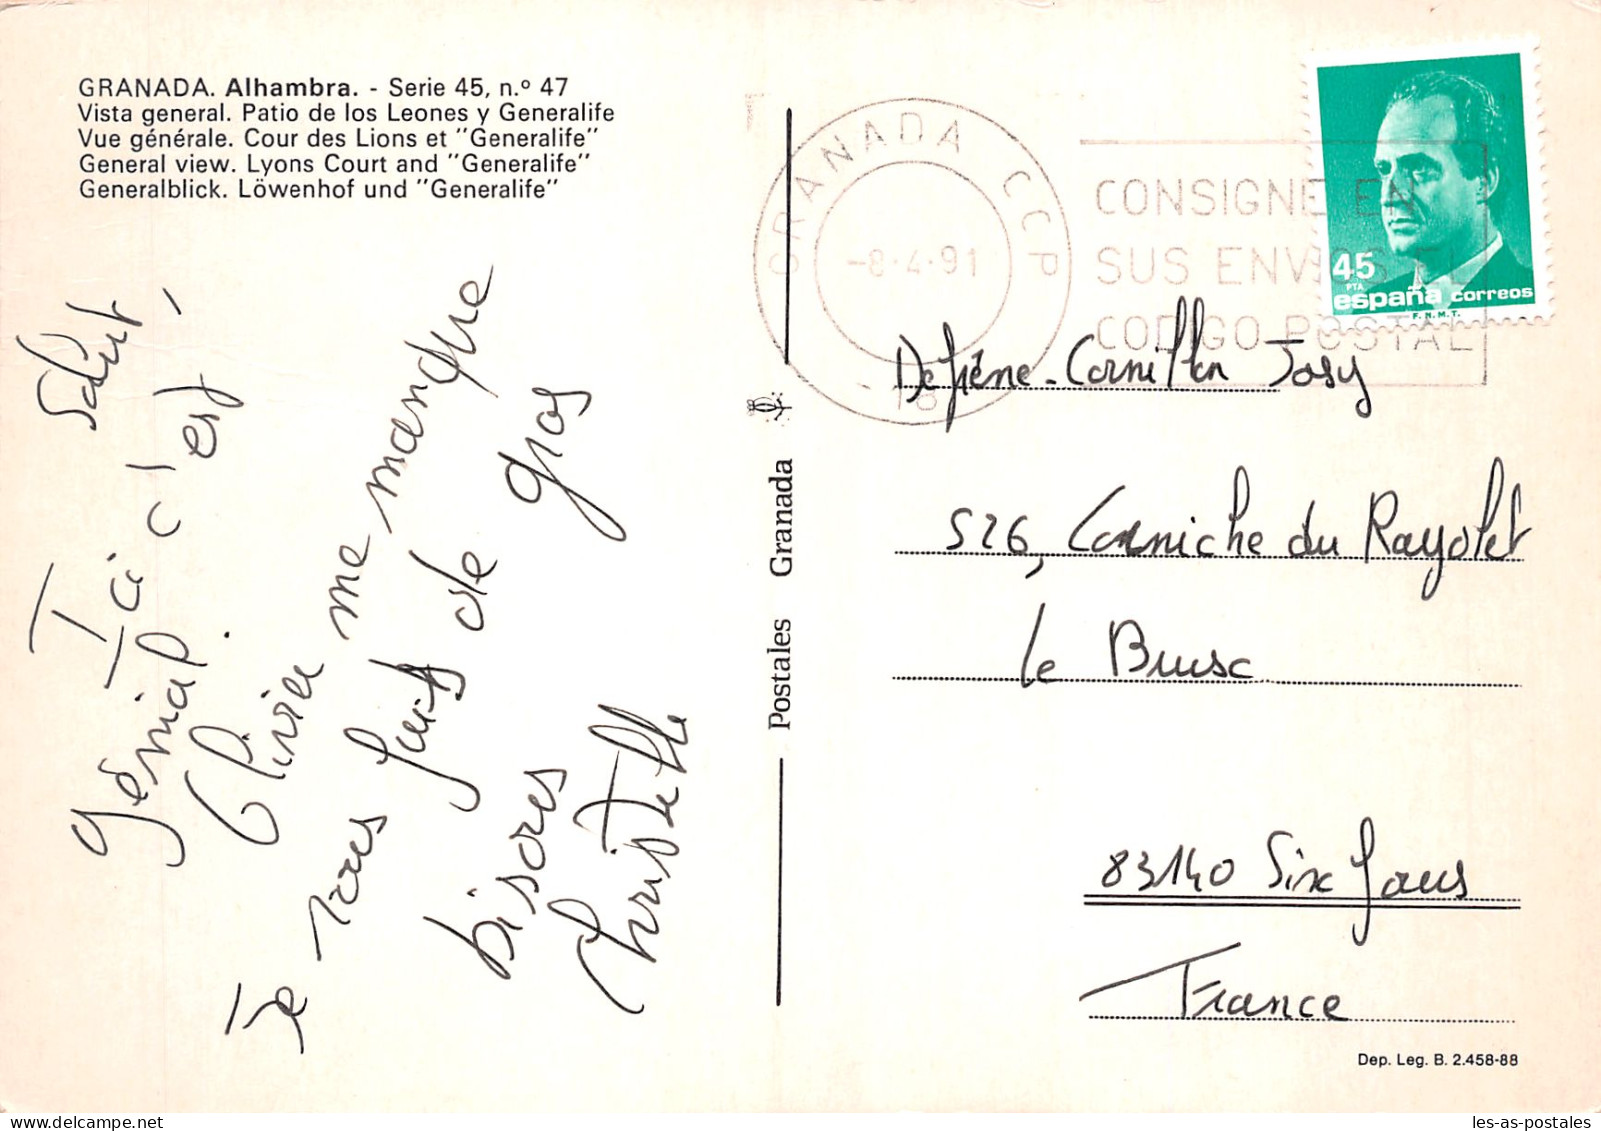 GRANADA. Alhambra. - Serie 45, n.º 47
Vista general. Patio de los Leones y Generalife
Vue générale. Cour des Lions et "Generalife"
General view. Lyons Court and "Generalife"
Generalblick. Löwenhof und "Generalife"
Salut,
Ici c'est
génial.
Olivier me manque
Je vous fais de gros
bisous
Christelle
Postales Granada
GRANADA CCP
-8.4.91
18
CONSIGNE EN
SUS ENVIOS EL
CODIGO POSTAL
45
PTA
españa correos
F.N.M.T.
Defrène-Cornillon Josy
526, Corniche du Rayolet
le Brusc
83140 Six Fours
France
Dep. Leg. B. 2.458-88
les-as-postales